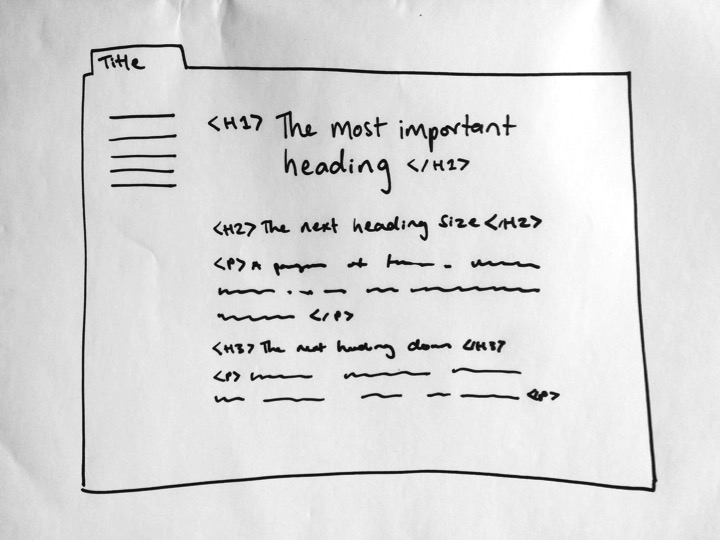 Title
<H1> The most important
heading </H1>
<H2> The next heading size </H2>
<P> A
</P>
<H3> The next heading down </H3>
<P>
<P>